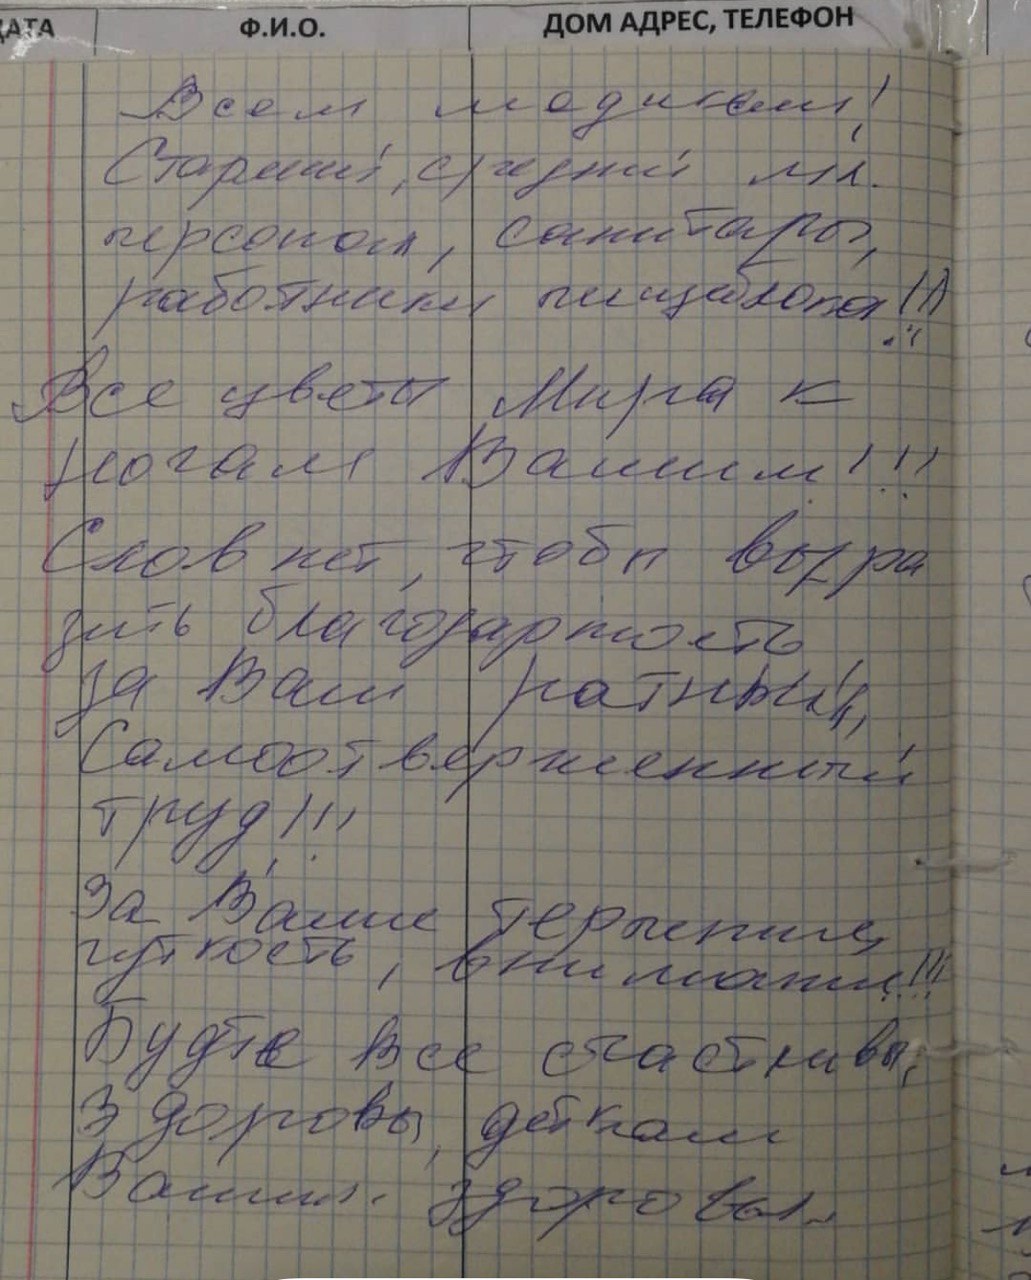 ДАТА Ф.И.О. ДОМ АДРЕС, ТЕЛЕФОН
Всем медикам!
Старший, средний м.
персонал, санитары,
работники пищеблока!!!
Все цветы Мира к
ногам Вашим!!!
Слов нет, чтобы выра
зить благодарность
за Ваш ратный,
Самоотверженный
труд!!!
За Ваше терпение,
чуткость, внимание!!!
Будте все счастливы,
Здоровы, деткам
Вашим здоровья.